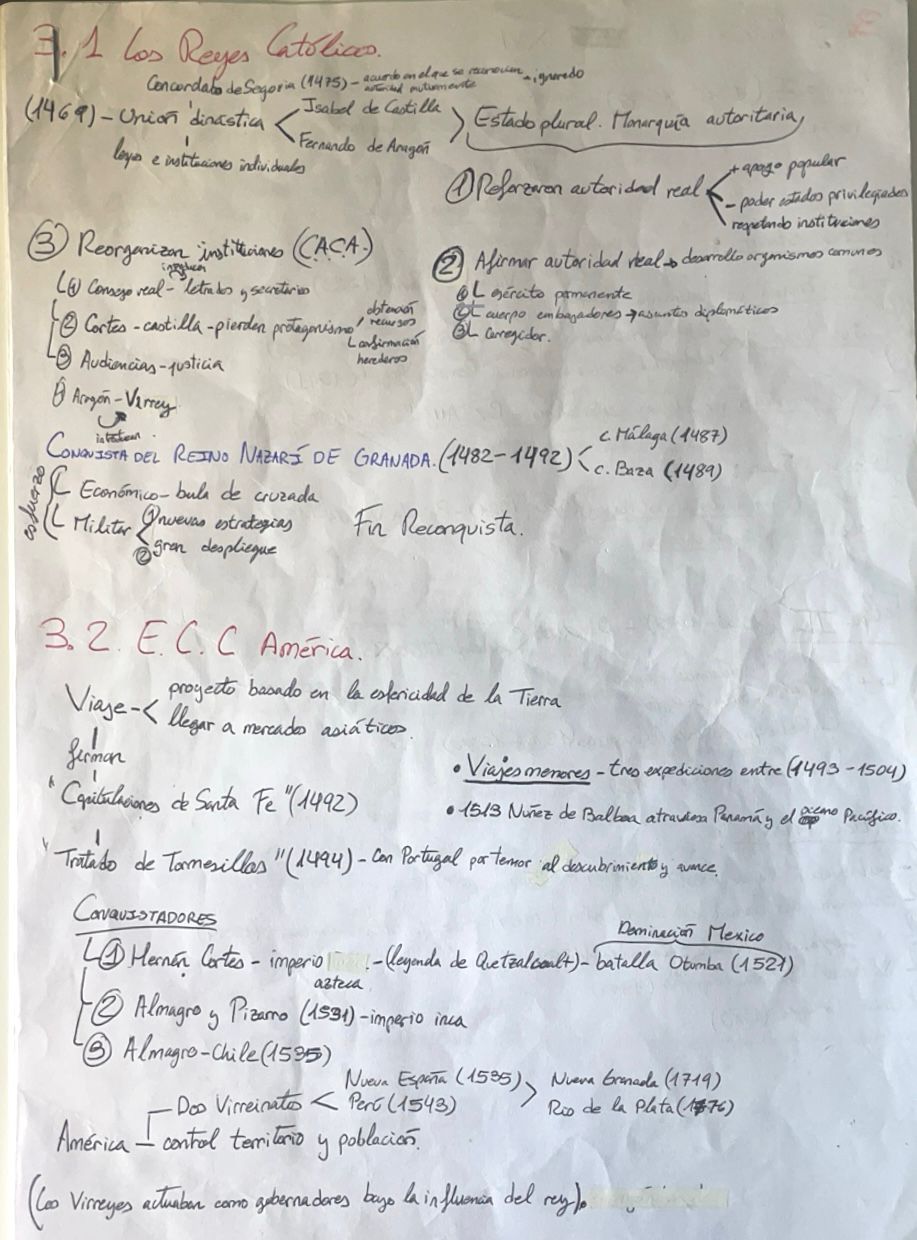 3.1 Los Reyes Católicos.
Concordato de Segovia (1475) - acuerdo en el que se reconocían autoridad mutuamente - igualado
(1469) - Unión dinástica < Isabel de Castilla
Fernando de Aragón > Estado plural. Monarquía autoritaria,
leyes e instituciones individuales
① Reforzaron autoridad real < + apoyo popular
- poder estados privilegiados
respetando instituciones
② Afirmar autoridad real → desarrollo organismos comunes
① L ejército permanente
② L cuerpo embajadores → asuntos diplomáticos
③ L corregidor.
③ Reorganizan instituciones (C.A.C.A.)
① Consejo real - letrados y secretarios
② Cortes - castilla - pierden protagonismo / obtención recursos
L confirmación herederos
③ Audiencias - justicia
Aragón - Virrey
CONQUISTA DEL REINO NAZARÍ DE GRANADA. (1482-1492) < c. Málaga (1487)
c. Baza (1489)
esfuerzo
L Económico - bula de cruzada
L Militar ① nuevas estrategias
② gran despliegue
Fin Reconquista.
3.2. E.C.C América.
Viaje - < proyecto basado en la esfericidad de la Tierra
llegar a mercados asiáticos.
firman
"Capitulaciones de Santa Fe" (1492)
• Viajes menores - tres expediciones entre (1493-1504)
• 1513 Nuñez de Balboa atraviesa Panamá y el oceano Pacífico.
"Tratado de Tornesillas" (1494) - Con Portugal por temor al descubrimiento y avance.
CONQUISTADORES
Dominación Mexico
L ① Hernán Cortes - imperio azteca - (leyenda de Quetzalcoalt) - batalla Otumba (1521)
② Almagro y Pizarro (1531) - imperio inca
③ Almagro - Chile (1535)
Dos Virreinatos < Nueva España (1535)
Perú (1543) > Nueva Granada (1719)
Rio de la Plata (1776)
América - control territorio y población.
(Los Virreyes actuaban como gobernadores bajo la influencia del rey).